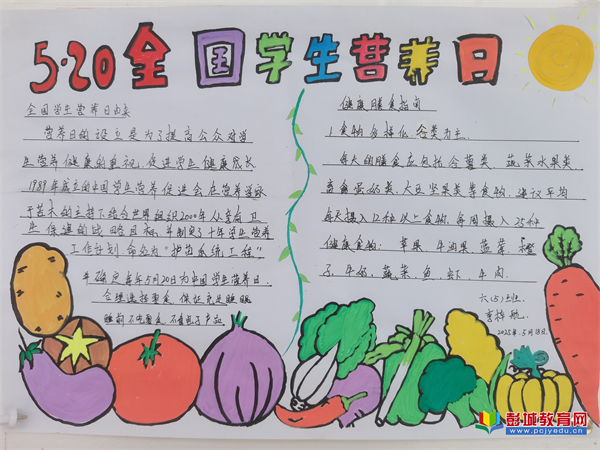 5·20全国学生营养日
全国学生营养日由来
营养日的设立是为了提高公众对学
生营养健康的重视,促进学生健康成长
1989年成立的中国学生营养促进会在营养学家
于若木的主持下结合世界组织2000年人人享有卫
生保健的战略目标,并制定了十年学生营养
工作计划 命名为“护苗系统工程”
并确定每年5月20日为中国学生营养日。
合理选择零食 保证充足睡眠
睡前不吃零食 不看电子产品
健康膳食指南
1.食物多样化 谷类为主
每天的膳食应包括谷薯类、蔬菜水果类
畜禽蛋奶类、大豆坚果类等食物,建议平均
每天摄入12种以上食物,每周摄入25种
健康食物: 苹果 牛油果 菠萝 橙
子、牛奶、蔬菜 鱼 虾 牛肉
六(5)班
2025年.5月18日.
彭城教育网
www.pcjyedu.cn